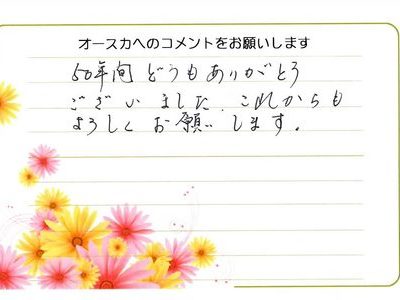 オースカへのコメントをお願いします
50年間どうもありがとう
ございました.これからも
よろしくお願いします。